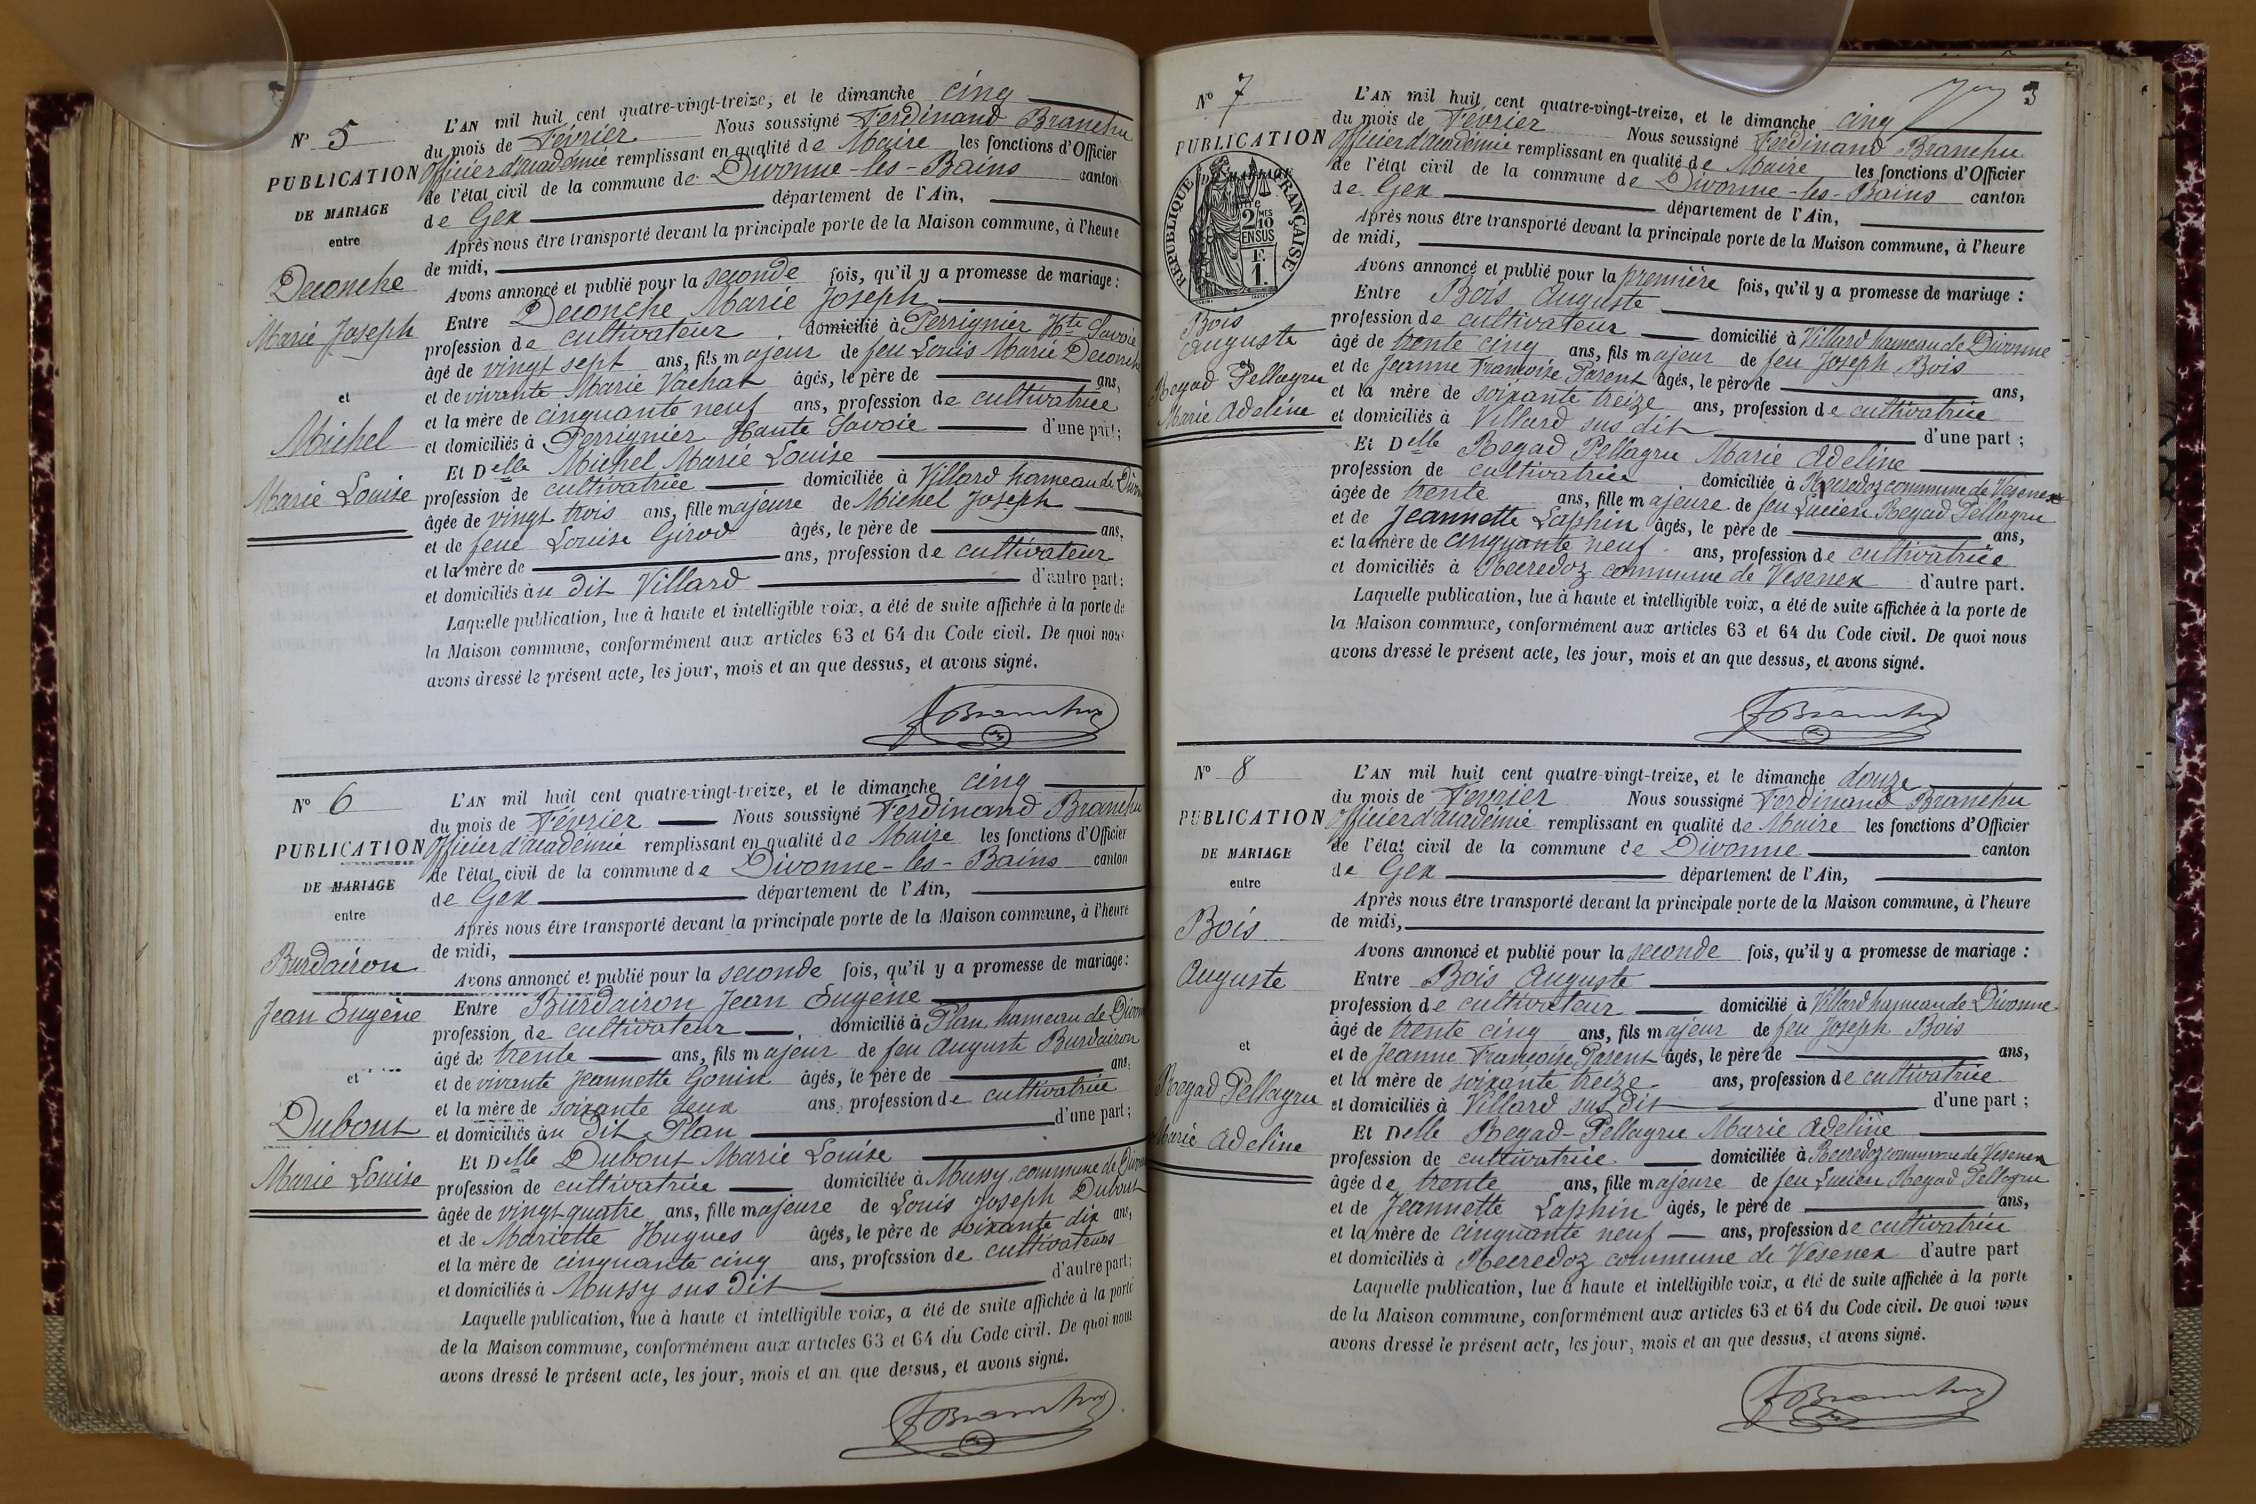 N° 5
PUBLICATION
DE MARIAGE
entre
Deconche
Marie Joseph
et
Michel
Marie Louise
L'AN mil huit cent quatre-vingt-treize, et le dimanche cinq
du mois de Février Nous soussigné Ferdinand Branchu
Officier d'académie remplissant en qualité de Maire les fonctions d'Officier
de l'état civil de la commune de Divonne-les-Bains canton
de Gex département de l'Ain,
Après nous être transporté devant la principale porte de la Maison commune, à l'heure
de midi,
Avons annoncé et publié pour la seconde fois, qu'il y a promesse de mariage :
Entre Deconche Marie Joseph
profession de cultivateur domicilié à Perrignier Hte Savoie
âgé de vingt sept ans, fils majeur de feu Louis Marie Deconche
et de vivante Marie Vachat âgés, le père de ans,
et la mère de cinquante neuf ans, profession de cultivatrice
et domiciliés à Perrignier Haute Savoie d'une part ;
Et Delle Michel Marie Louise
profession de cultivatrice domiciliée à Villard hameau de
âgée de vingt trois ans, fille majeure de Michel Joseph
et de feue Louise Girod âgés, le père de ans,
et la mère de ans, profession de cultivateur
et domiciliés au dit Villard d'autre part ;
Laquelle publication, lue à haute et intelligible voix, a été de suite affichée à la porte de
la Maison commune, conformément aux articles 63 et 64 du Code civil. De quoi nous
avons dressé le présent acte, les jour, mois et an que dessus, et avons signé.
FBranchu
N° 6
PUBLICATION
DE MARIAGE
entre
Burdairon
Jean Eugène
et
Dubout
Marie Louise
L'AN mil huit cent quatre-vingt-treize, et le dimanche cinq
du mois de Février Nous soussigné Ferdinand Branchu
Officier d'académie remplissant en qualité de Maire les fonctions d'Officier
de l'état civil de la commune de Divonne-les-Bains canton
de Gex département de l'Ain,
Après nous être transporté devant la principale porte de la Maison commune, à l'heure
de midi,
Avons annoncé et publié pour la seconde fois, qu'il y a promesse de mariage :
Entre Burdairon Jean Eugène
profession de cultivateur domicilié à Plan, hameau de
âgé de trente ans, fils majeur de feu Auguste Burdairon
et de vivante Jeannette Gonin âgés, le père de ans,
et la mère de soixante deux ans, profession de cultivatrice
et domiciliés au dit Plan d'une part ;
Et Delle Dubout Marie Louise
profession de cultivatrice domiciliée à Mussy, commune de
âgée de vingt quatre ans, fille majeure de Louis Joseph Dubout
et de Mariette Hugues âgés, le père de soixante dix ans,
et la mère de cinquante cinq ans, profession de cultivateurs
et domiciliés à Mussy sus dit d'autre part ;
Laquelle publication, lue à haute et intelligible voix, a été de suite affichée à la porte
de la Maison commune, conformément aux articles 63 et 64 du Code civil. De quoi nous
avons dressé le présent acte, les jour, mois et an que dessus, et avons signé.
FBranchu
3
N° 7
PUBLICATION
DE MARIAGE
RÉPUBLIQUE FRANÇAISE
2/10 MES
EN SUS
F.
1.
Bois
Auguste
et
Regad Pellagru
Marie Adeline
L'AN mil huit cent quatre-vingt-treize, et le dimanche cinq
du mois de Février Nous soussigné Ferdinand Branchu
Officier d'académie remplissant en qualité de Maire les fonctions d'Officier
de l'état civil de la commune de Divonne-les-Bains canton
de Gex département de l'Ain,
Après nous être transporté devant la principale porte de la Maison commune, à l'heure
de midi,
Avons annoncé et publié pour la première fois, qu'il y a promesse de mariage :
Entre Bois Auguste
profession de cultivateur domicilié à Villard hameau de Divonne
âgé de trente cinq ans, fils majeur de feu Joseph Bois
et de Jeanne Françoise Parent âgés, le père de ans,
et la mère de soixante treize ans, profession de cultivatrice
et domiciliés à Villard sus dit d'une part ;
Et Delle Regad Pellagru Marie Adeline
profession de cultivatrice domiciliée à Recredoz commune de Vesenex
âgée de trente ans, fille majeure de feu Lucien Regad Pellagru
et de Jeannette Laphin âgés, le père de ans,
et la mère de cinquante neuf ans, profession de cultivatrice
et domiciliés à Recredoz commune de Vesenex d'autre part.
Laquelle publication, lue à haute et intelligible voix, a été de suite affichée à la porte de
la Maison commune, conformément aux articles 63 et 64 du Code civil. De quoi nous
avons dressé le présent acte, les jour, mois et an que dessus, et avons signé.
FBranchu
N° 8
PUBLICATION
DE MARIAGE
entre
Bois
Auguste
et
Regad Pellagru
Marie Adeline
L'AN mil huit cent quatre-vingt-treize, et le dimanche douze
du mois de Février Nous soussigné Ferdinand Branchu
Officier d'académie remplissant en qualité de Maire les fonctions d'Officier
de l'état civil de la commune de Divonne canton
de Gex département de l'Ain,
Après nous être transporté devant la principale porte de la Maison commune, à l'heure
de midi,
Avons annoncé et publié pour la seconde fois, qu'il y a promesse de mariage :
Entre Bois Auguste
profession de cultivateur domicilié à Villard hameau de Divonne
âgé de trente cinq ans, fils majeur de feu Joseph Bois
et de Jeanne Françoise Parent âgés, le père de ans,
et la mère de soixante treize ans, profession de cultivatrice
et domiciliés à Villard sus dit d'une part ;
Et Delle Regad-Pellagru Marie Adeline
profession de cultivatrice domiciliée à Recredoz commune de Vesenex
âgée de trente ans, fille majeure de feu Lucien Regad Pellagru
et de Jeannette Laphin âgés, le père de ans,
et la mère de cinquante neuf ans, profession de cultivatrice
et domiciliés à Recredoz commune de Vesenex d'autre part
Laquelle publication, lue à haute et intelligible voix, a été de suite affichée à la porte
de la Maison commune, conformément aux articles 63 et 64 du Code civil. De quoi nous
avons dressé le présent acte, les jour, mois et an que dessus, et avons signé.
FBranchu